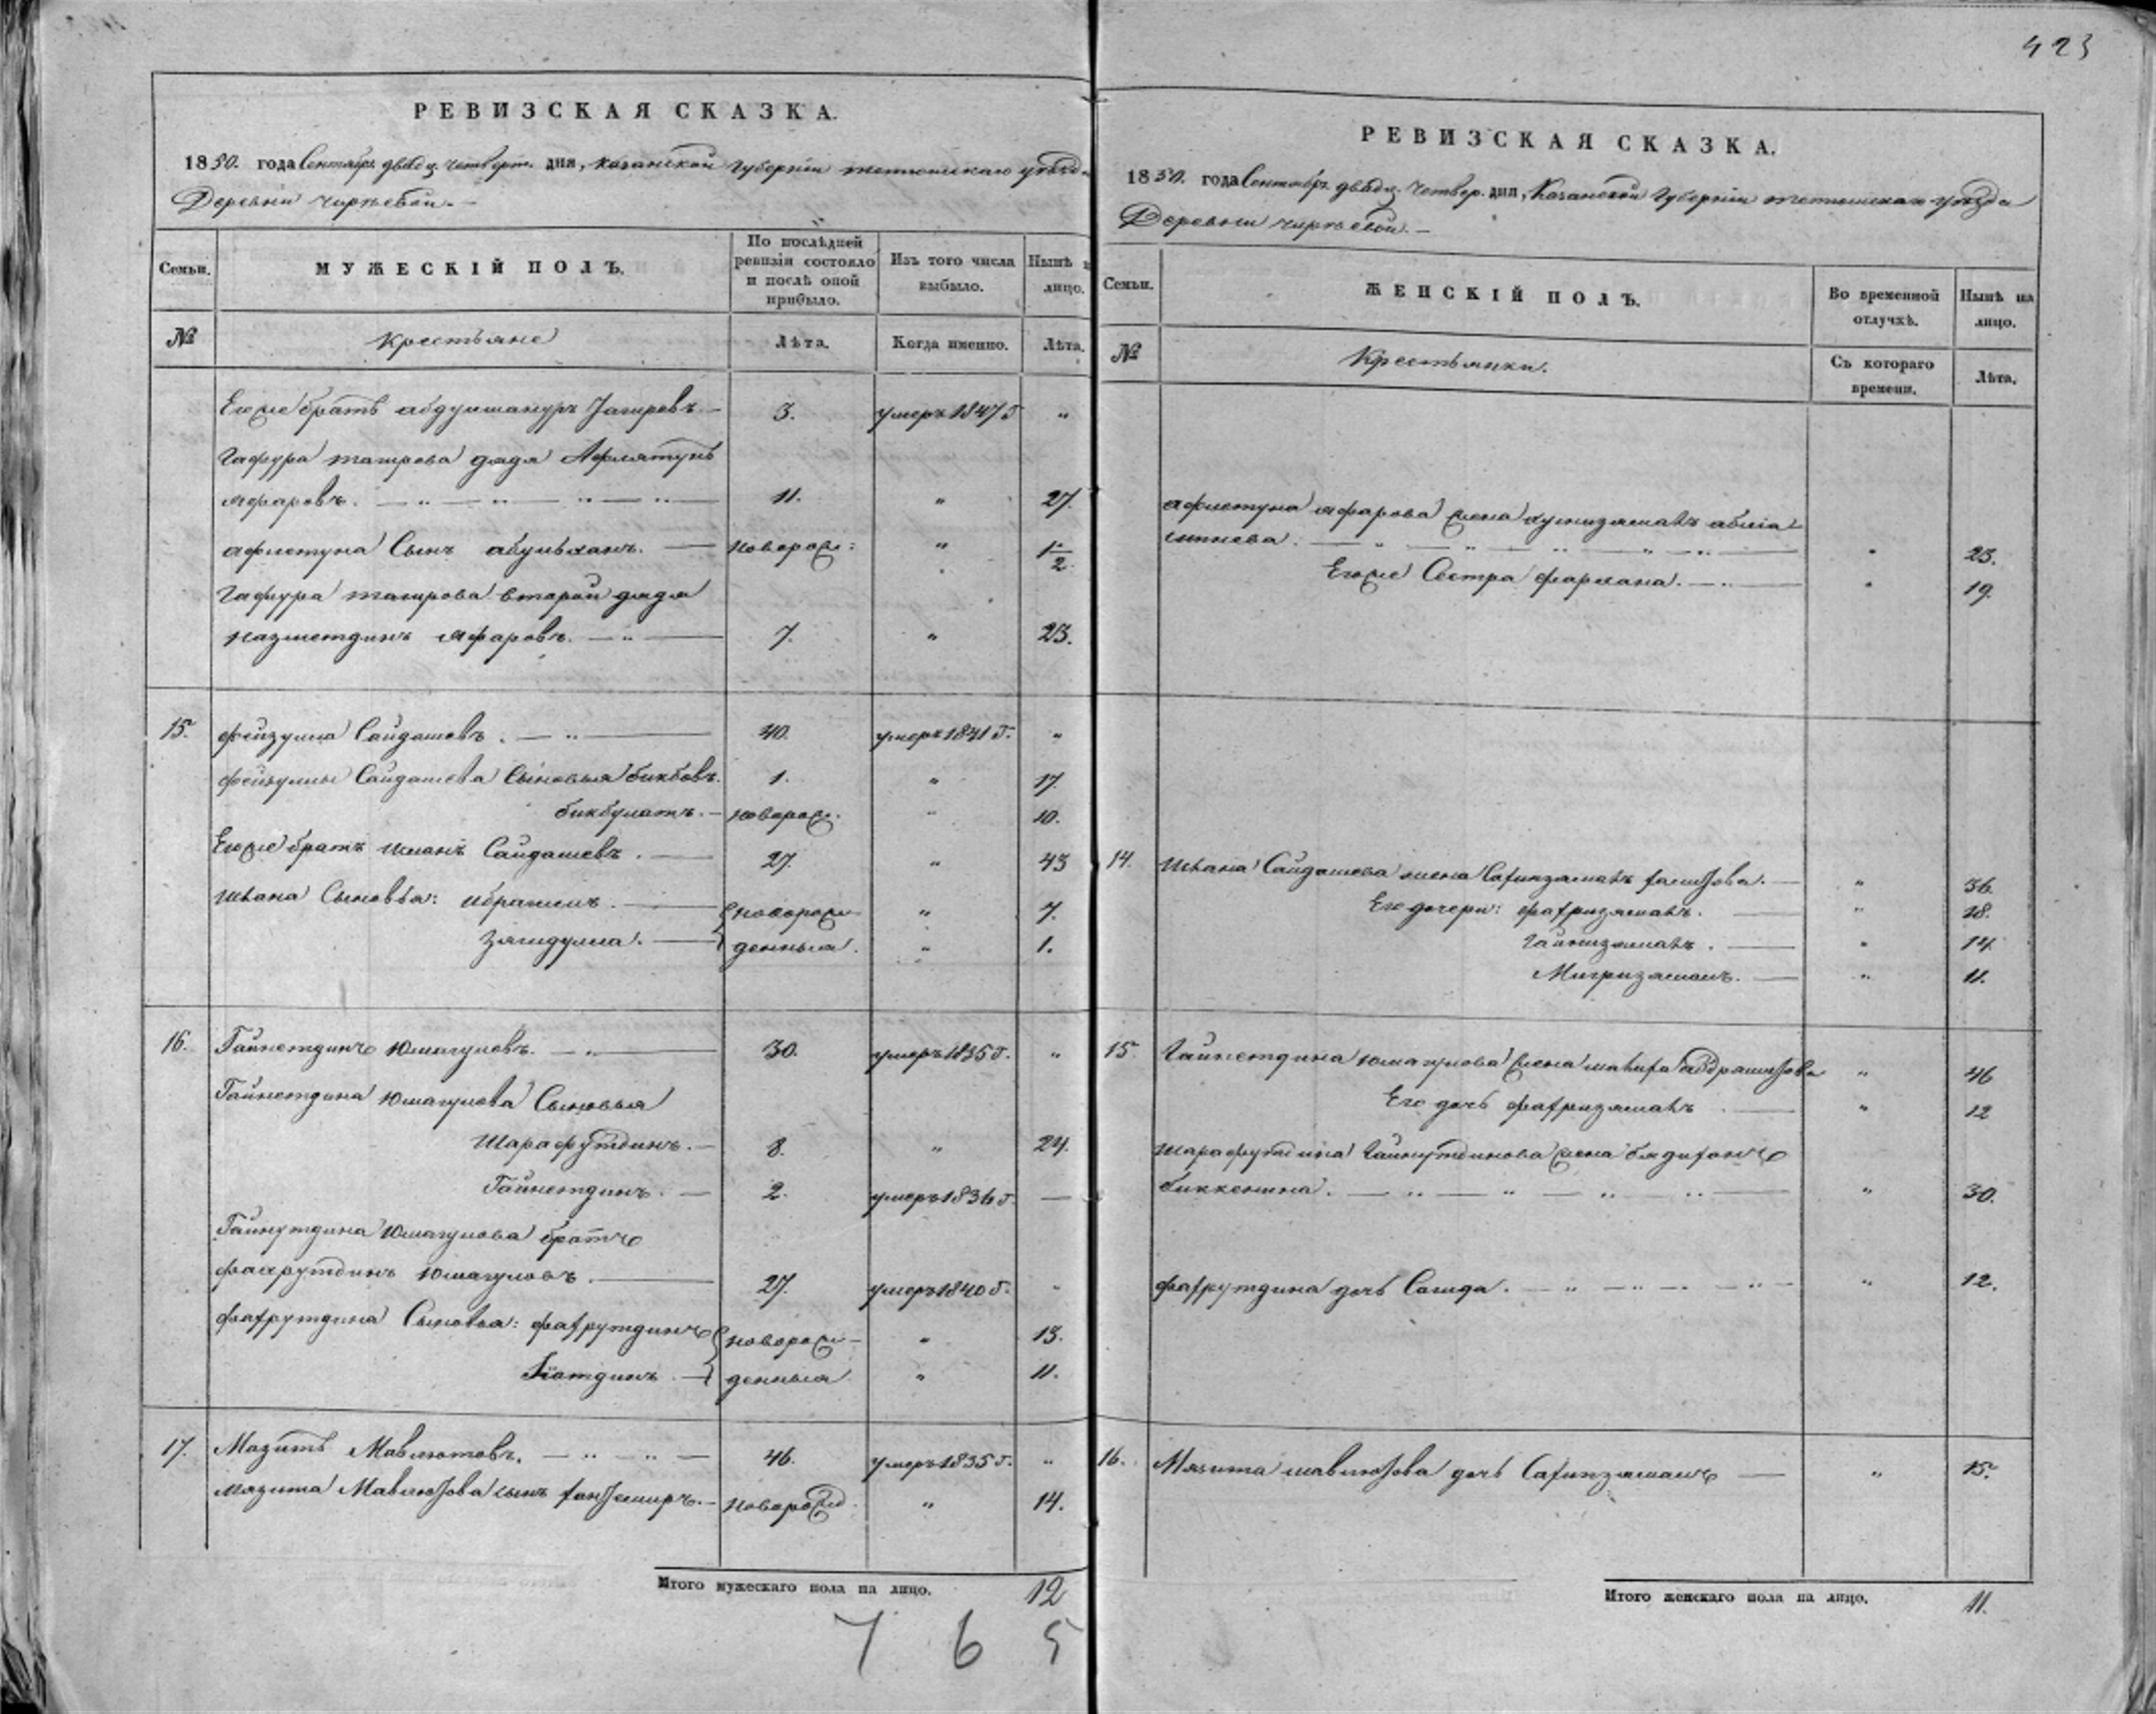 423
РЕВИЗСКАЯ СКАЗКА.
1850. года Сентябр. двадц. четверт. дня, Казанской Губернiи тетюшскаго уѣзда
Деревни чирѣевой. —
Семьи. МУЖЕСКІЙ ПОЛЪ. По послѣдней ревизіи состояло и послѣ оной прибыло. Изъ того числа выбыло. Нынѣ на лицо.
№ Крестьяне Лѣта. Когда именно. Лѣта.
Егоже братъ 3. умеръ 1847 г. „
Гафура тагирова дядя Афлятунъ
Яфаровъ. 11. „ 27.
афлетуна Сынъ абулханъ. — новорож: „ 1/2
Гафура тагирова второй дядя
назметдинъ Яфаровъ. 7. „ 23.
15. фейзулла Сайдашевъ. 40. умеръ 1841 г. „
фейзуллы Сайдашева Сыновья бикбовъ. 1. „ 17.
бикбулатъ. — новорож. „ 10.
Егоже братъ Сайдашевъ. 27. „ 43
Сыновья: ибрагимъ. новорож- „ 7.
денныя. „ 1.
16. Гайнетдинъ Юмагуловъ. 30. умеръ 1835 г. „
Гайнетдина Юмагулова Сыновья
Шарафутдинъ. — 8. „ 24.
Гайнетдинъ. — 2. умеръ 1836 г. —
Гайнутдина Юмагулова братъ
фахрутдинъ Юмагуловъ. 27. умеръ 1840 г. „
фахрутдина Сыновья: фахрутдинъ новорож- „ 13.
денныя „ 11.
17. Мазитъ Мавлютовъ. 46. умеръ 1835 г. „
Мязита Мавлютова сынъ хантемиръ. — новорожд. „ 14.
Итого мужескаго пола на лицо. 12
7 6 5
РЕВИЗСКАЯ СКАЗКА.
1850. года Сентябр. двадц. четвер. дня, Казанской Губернiи тетюшскаго уѣзда
Деревни чирѣевой. —
Семьи. ЖЕНСКІЙ ПОЛЪ. Во временной отлучкѣ. Нынѣ на лицо.
№ Крестьянки. Съ котораго времени. Лѣта.
афлетуна яфарова жена
„ 23.
Егоже Сестра фархана. „ 19.
14. Сайдашева жена „ 36.
Его дочери: „ 18.
„ 14.
Мигризямалъ. „ 11.
15. Гайнетдина юмагулова жена „ 46
Его дочь „ 12
шарафутдина Гайнутдинова жена
биккенина. „ 30.
фахрутдина дочь Саида. „ 12.
16. Мязита мавлютова дочь „ 15.
Итого женскаго пола на лицо. 11.